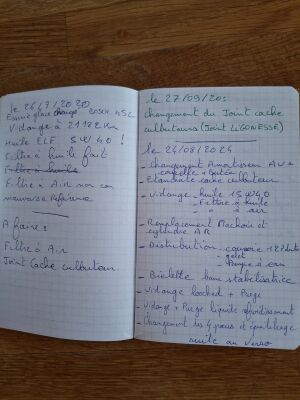 le 26/9/2020
Essuie glace changé BOSCH 45C
Vidange à 21182 Km
Huile ELF 5W40 !
Filtre à huile fait
Filtre à huile
Filtre à Air non car
mauvaise Référence
A faire :
Filtre à Air
Joint Cache culbuteur
le 27/09/20 :
changement du Joint cache
culbuteurs (Joint LIGONESSE)
le 24/08/2024
- Changement Amortisseur AV +
coupelle + butée
- Etanchéité cache culbuteur
- Vidange huile 15W40
- Filtre à huile
- " à air
- Remplacement Machoir et
cylindre AR
- Distribution - courroie
- galet
- Pompe à eau
- Biellette barre stabilisatrice
- Vidange + Purge
- Vidange + Purge liquide refroidissement
- Changement des 4 pneus et équilibrage
suite au verso